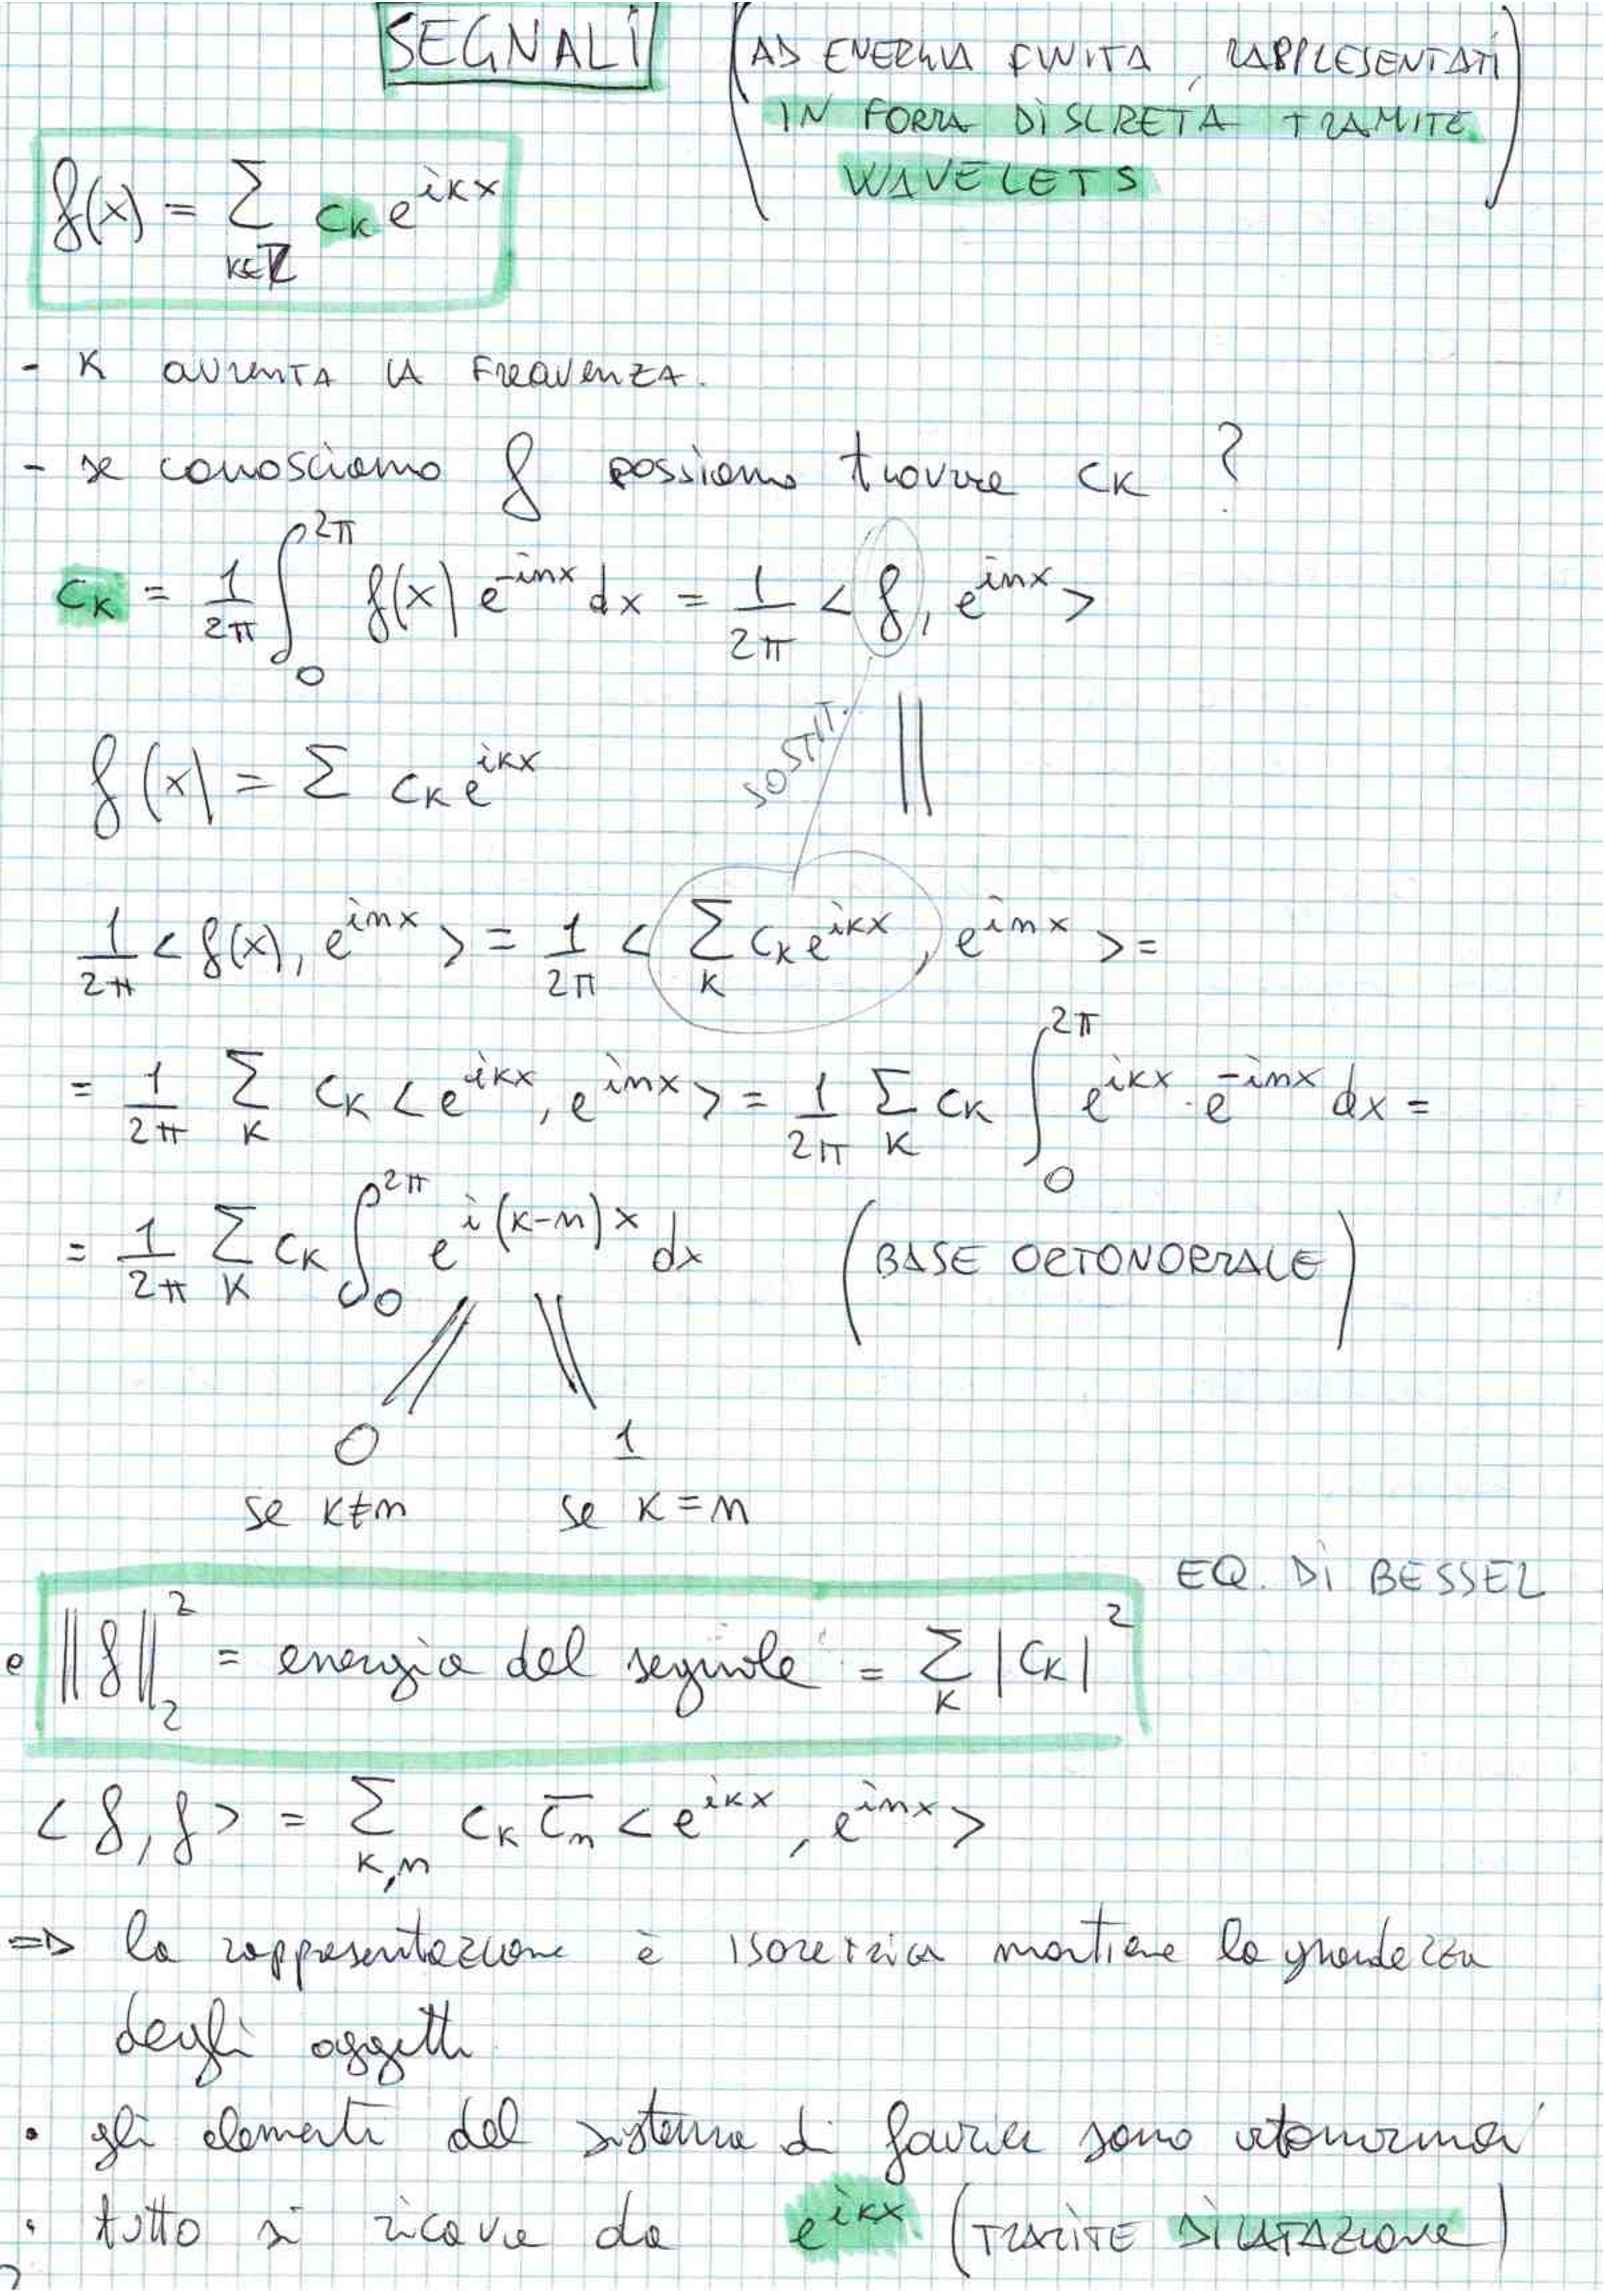 SEGNALI
(AD ENERGIA FINITA, RAPPRESENTATI
IN FORMA DISCRETA TRAMITE
WAVELETS)
f(x) = Σ_{k∈ℤ} c_k e^{ikx}
- K aumenta la frequenza.
- se conosciamo f possiamo trovare c_k ?
c_k = 1/2π ∫_0^{2π} f(x) e^{-inx} dx = 1/2π <f, e^{inx}>
SOSTIT.
f(x) = Σ c_k e^{ikx}
1/2π <f(x), e^{inx}> = 1/2π <Σ_k c_k e^{ikx}, e^{inx}> =
= 1/2π Σ_k c_k <e^{ikx}, e^{inx}> = 1/2π Σ_k c_k ∫_0^{2π} e^{ikx} · e^{-inx} dx =
= 1/2π Σ_k c_k ∫_0^{2π} e^{i(k-n)x} dx (BASE ORTONORMALE)
0 1
se k≠n se k=n
EQ. DI BESSEL
• ||f||_2^2 = energia del segnale = Σ_k |c_k|^2
<f, f> = Σ_{k,n} c_k c̄_n <e^{ikx}, e^{inx}>
=> la rappresentazione è isometrica mantiene la grandezza
degli oggetti
• gli elementi del sistema di fourier sono ortonormai
• tutto si ricava da e^{ikx} (TRAMITE DILATAZIONE)